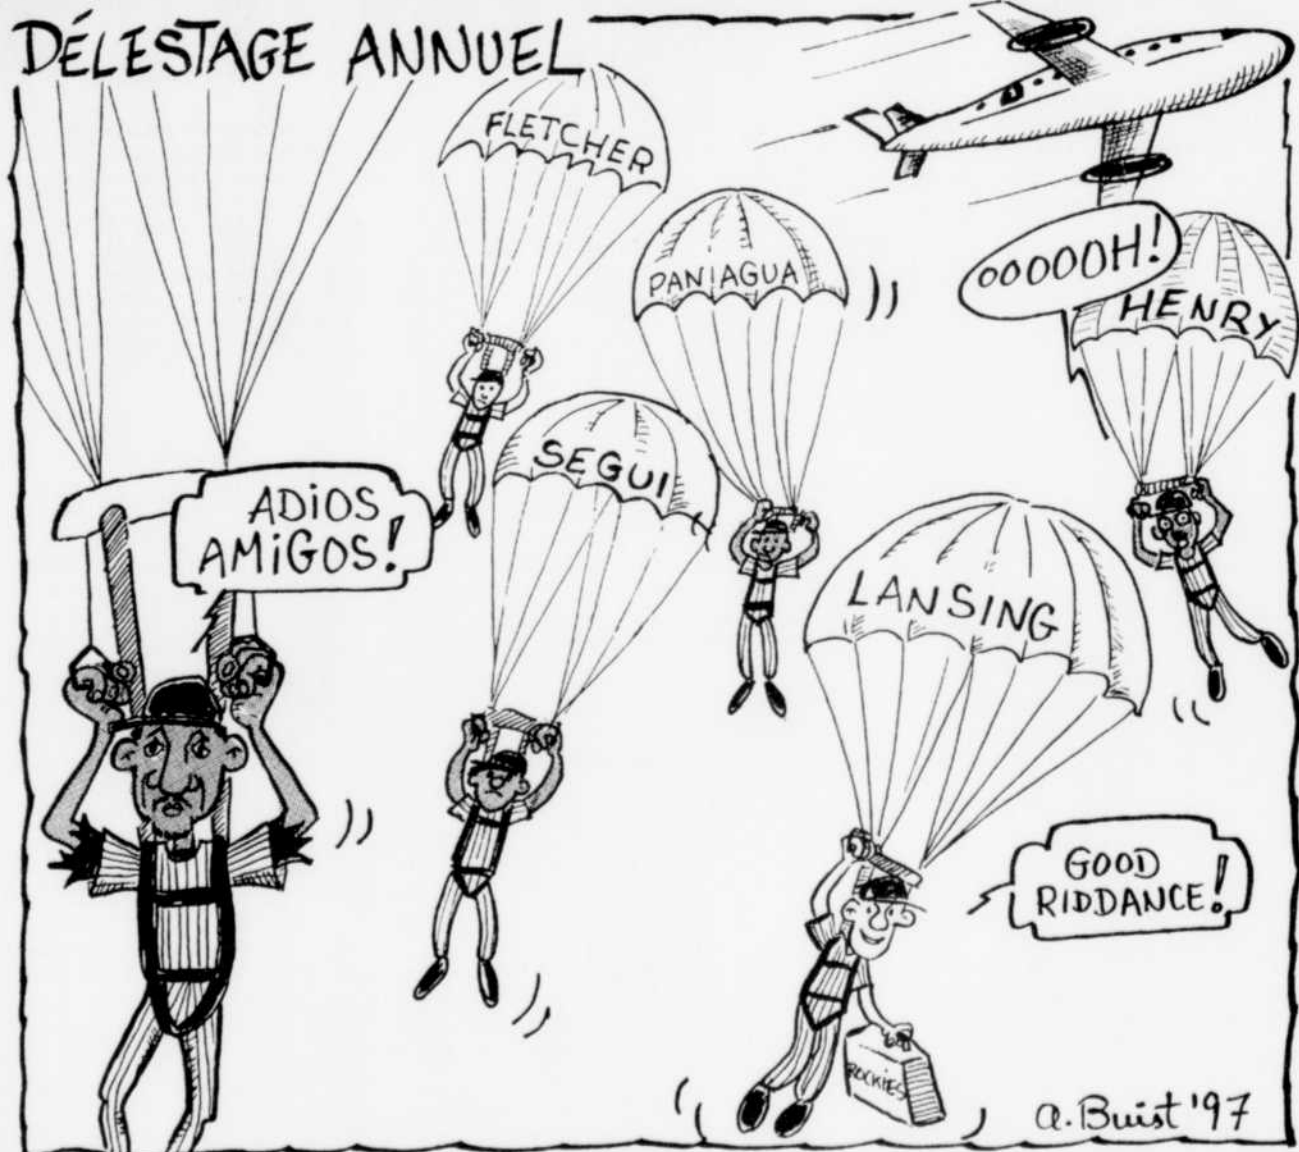 DÉLESTAGE ANNUEL
FLETCHER
PANIAGUA
OOOOOH!
HENRY
SEGUI
ADiOS
AMiGOS!
LANSING
GOOD
RIDDANCE!
ROCKIES
A. Buist '97